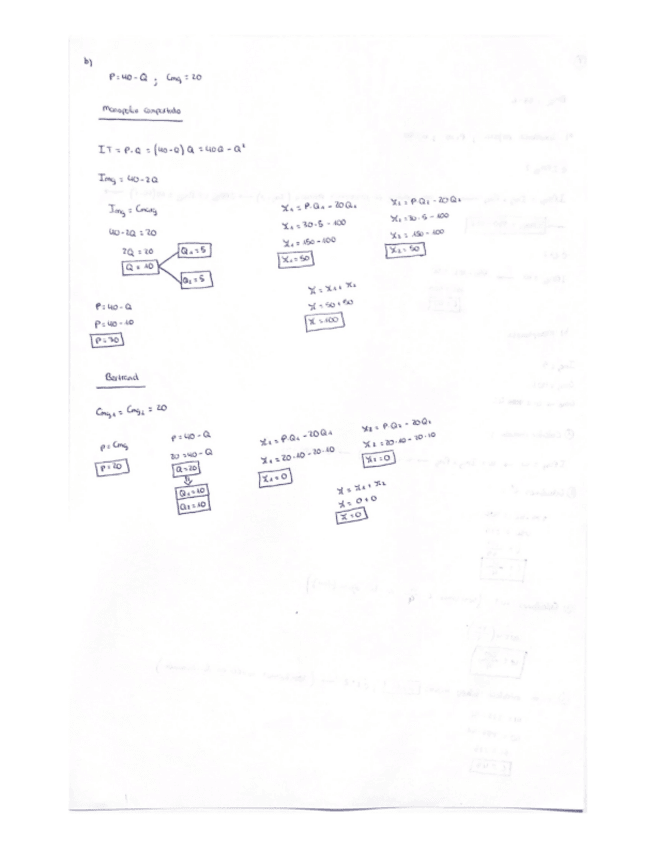 b)
P = 40 - Q ; Cmg = 20
Monopolio compartido
IT = P · Q = (40 - Q) Q = 40Q - Q²
Img = 40 - 2Q
Img = Cmg
40 - 2Q = 20
2Q = 20
Q = 10
Q₁ = 5
Q₂ = 5
P = 40 - Q
P = 40 - 10
P = 30
π₁ = P · Q₁ - 20Q₁
π₁ = 30 · 5 - 100
π₁ = 150 - 100
π₁ = 50
π₂ = P Q₂ - 20Q₂
π₂ = 30 · 5 - 100
π₂ = 150 - 100
π₂ = 50
π = π₁ + π₂
π = 50 + 50
π = 100
Bertrand
Cmg₁ = Cmg₂ = 20
P = Cmg
P = 20
P = 40 - Q
20 = 40 - Q
Q = 20
Q₁ = 10
Q₂ = 10
π₁ = P Q₁ - 20Q₁
π₁ = 20 · 10 - 20 · 10
π₁ = 0
π₂ = P Q₂ - 20Q₂
π₂ = 20 · 10 - 20 · 10
π₂ = 0
π = π₁ + π₂
π = 0 + 0
π = 0